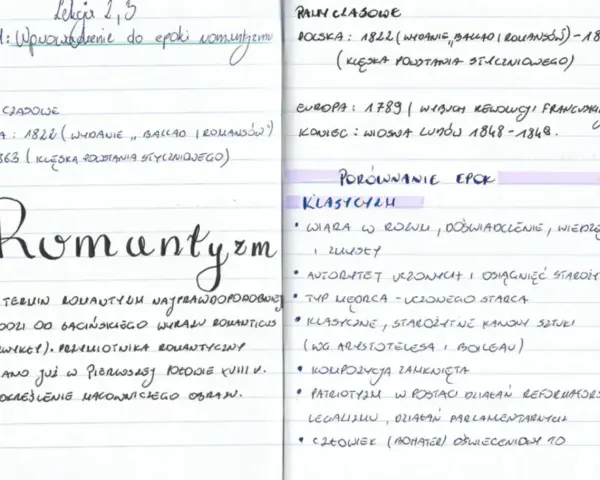 Lekcja 2,3
: Wprowadzenie do epoki romantyzmu
CZASOWE
A : 1822 ( WYDANIE „ BALLAD I ROMANSÓW")
863 ( KLĘSKA POWSTANIA STYCZNIOWEGO)
Romantyzm
TERMIN ROMANTYZM NAJPRAWDOPODOBNIEJ
ODZI OD ŁACIŃSKIEGO WYRAZU ROMANTICUS
WYKŁY). PRZYMIOTNIKA ROMANTYCZNY
ANO JUŻ W PIERWSZEJ POŁOWIE XVIII W.
OKREŚLENIE MALOWNICZEGO OBRAZU.
RAMY CZASOWE
POLSKA : 1822 ( WYDANIE „BALLAD I ROMANSÓW) - 18
( KLĘSKA POWSTANIA STYCZNIOWEGO)
EUROPA : 1789 ( WYBUCH REWOLUCJI FRANCUSKI
KONIEC : WIOSNA LUDÓW 1848 - 1849.
PORÓWNANIE EPOK
KLASYCYZM
• WIARA W ROZUM , DOŚWIADCZENIE, WIEDZĘ
I ZMYSŁY
• AUTORYTET UCZONYCH I OSIĄGNIĘĆ STAROŻY
• TYP MĘDRCA - UCZONEGO STARCA
• KLASYCZNE , STAROŻYTNE KANONY SZTUKI
(WG ARYSTOTELESA I BOILEAU)
• KOMPOZYCJA ZAMKNIĘTA
• PATRIOTYZM W POSTACI DZIAŁAŃ REFORMATORS
LEGALIZMU , DZIAŁAŃ PARLAMENTARNYCH
• CZŁOWIEK (BOHATER) OŚWIECENIOWY TO